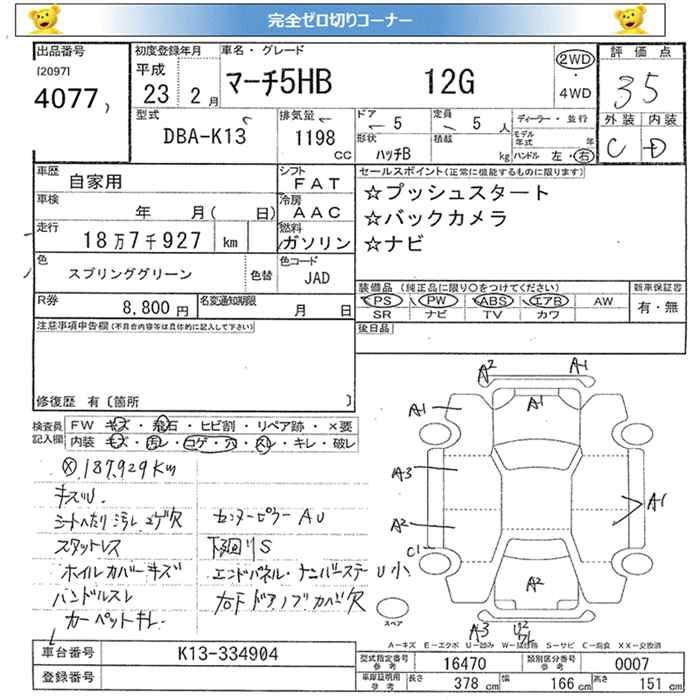 完全ゼロ切りコーナー
出品番号
[2097]
4077
初度登録年月
平成
23 2 月
車名・グレード
マーチ5HB 12G
2WD
・
4WD
評価点
35
外装 内装
C D
型式
DBA-K13
排気量
1198
CC
ドア
5
形状
ハッチB
定員
5 人
積載
kg
ディーラー・並行
モデル年式 年
ハンドル 左・右
車歴
自家用
シフト
FAT
車検
年 月( 日)
冷房
AAC
走行
18万7千927 km
燃料
ガソリン
色
スプリンググリーン
色替
色コード
JAD
R券
8,800円
名変通知期限
月 日
セールスポイント(正常に機能するものに限ります)
☆プッシュスタート
☆バックカメラ
☆ナビ
装備品 (純正品に限り○をつけてください)
PS PW ABS エアB AW
SR ナビ TV カワ
新車保証書
有・無
後日品
注意事項申告欄(不具合内容等は具体的に記入して下さい)
修復歴 有〔箇所 〕
検査員
記入欄
FW キズ・飛石・ヒビ割・リペア跡・×要
内装 キズ・汚レ・コゲ・穴・スレ・キレ・破レ
187,929Km
キズU.
シートヘたり汚レ コゲ穴
スタットレス
ホイルカバーキズ
ハンドルスレ
カーペットキレ
センターピラー AU
下廻りS
エンドパネル・ナンバーステー U小
右F ドアノブカバ欠
A2 A1
A1 A1
A3
A2 A1
C1
A2
A3 U2
スペア
A－キズ E－エクボ U－凹み W－補修跡 S－サビ C－腐食 XX－交換済
車台番号
K13-334904
登録番号
型式指定番号
参考
16470
類別区分番号
参考
0007
車庫証明用
参考
長さ 378 cm 幅 166 cm 高さ 151 cm